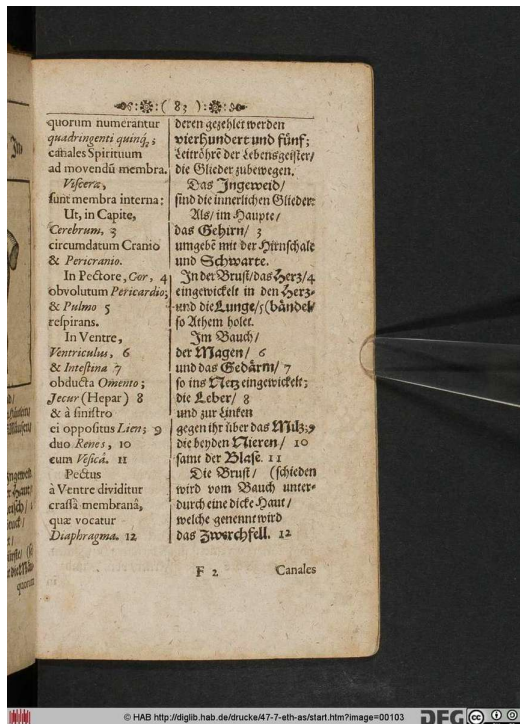 ( 83 )
quorum numerantur
quadringenti quinq;;
canales Spirituum
ad movendū membra.
Viscera,
sunt membra interna:
Ut, in Capite,
Cerebrum, 3
circumdatum Cranio
& Pericranio.
In Pectore, Cor, 4
obvolutum Pericardio;
& Pulmo 5
respirans.
In Ventre,
Ventriculus, 6
& Intestina 7
obducta Omento;
Jecur (Hepar) 8
& à sinistro
ei oppositus Lien; 9
duo Renes, 10
cum Vesicâ. 11
Pectus
à Ventre dividitur
crassâ membranâ,
quæ vocatur
Diaphragma. 12
deren gezehlet werden
vierhundert und fünf;
Leitröhrē der Lebensgeister/
die Glieder zubewegen.
Das Ingeweid/
sind die innerlichen Glieder:
Als/ im Haupte/
das Gehirn/ 3
umgebē mit der Hirnschale
und Schwarte.
In der Brust/ das Herz/ 4
eingewickelt in den Herz-
und die Lunge/ 5 (bändel/
so Athem holet.
Im Bauch/
der Magen/ 6
und das Gedärm/ 7
so ins Netz eingewickelt;
die Leber/ 8
und zur Linken
gegen ihr über das Milz; 9
die beyden Nieren/ 10
samt der Blase. 11
Die Brust/ (schieden
wird vom Bauch unter-
durch eine dicke Haut/
welche genennt wird
das Zwerchfell. 12
F 2
Canales
© HAB http://diglib.hab.de/drucke/47-7-eth-as/start.htm?image=00103
DFG